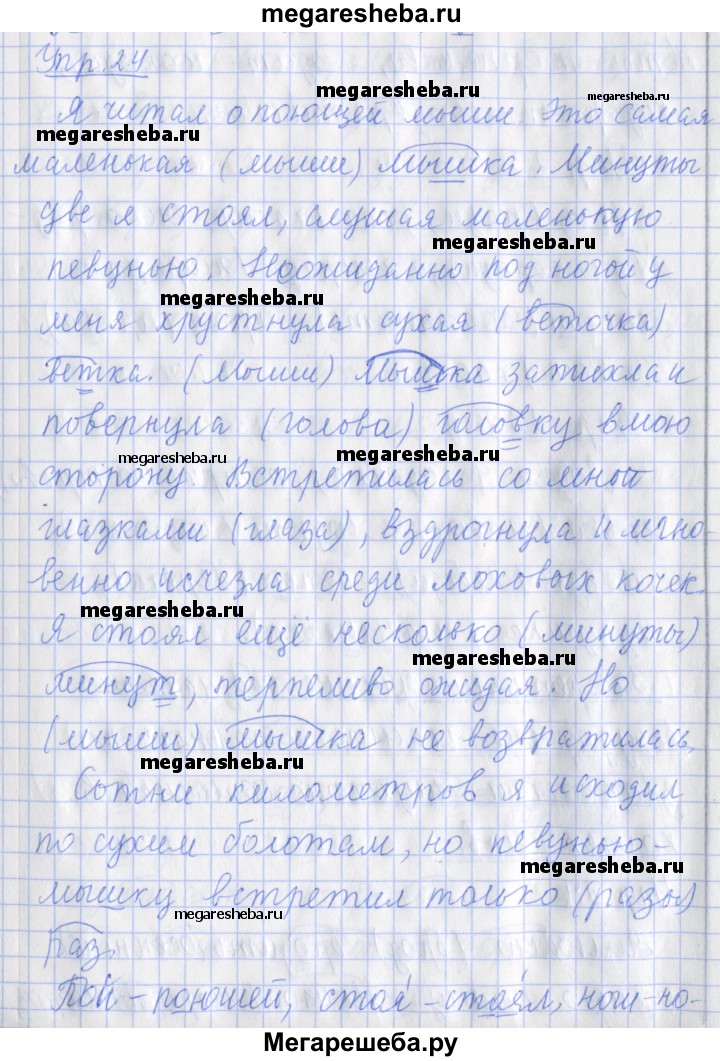 megaresheba.ru
Упр. 24
megaresheba.ru
megaresheba.ru
Я читал о поющей мыши. Это самая
megaresheba.ru
маленькая (мыши) мышка. Минуты
две я стоял, слушая маленькую
megaresheba.ru
певунью. Неожиданно под ногой у
megaresheba.ru
меня хрустнула сухая (веточка)
ветка. (Мыши) Мышка затихла и
повернула (голова) головку в мою
megaresheba.ru
megaresheba.ru
сторону. Встретилась со мной
глазками (глаза), вздрогнула и мгно-
венно исчезла среди моховых кочек.
megaresheba.ru
Я стоял ещё несколько (минуты)
megaresheba.ru
минут, терпеливо ожидая. Но
(мыши) мышка не возвратилась.
megaresheba.ru
Сотни километров я исходил
по сухим болотам, но певунью-
megaresheba.ru
мышку встретил только (разы)
megaresheba.ru
раз.
Пой - поющей, стоя - стоял, ног-но-
Мегарешеба.ру